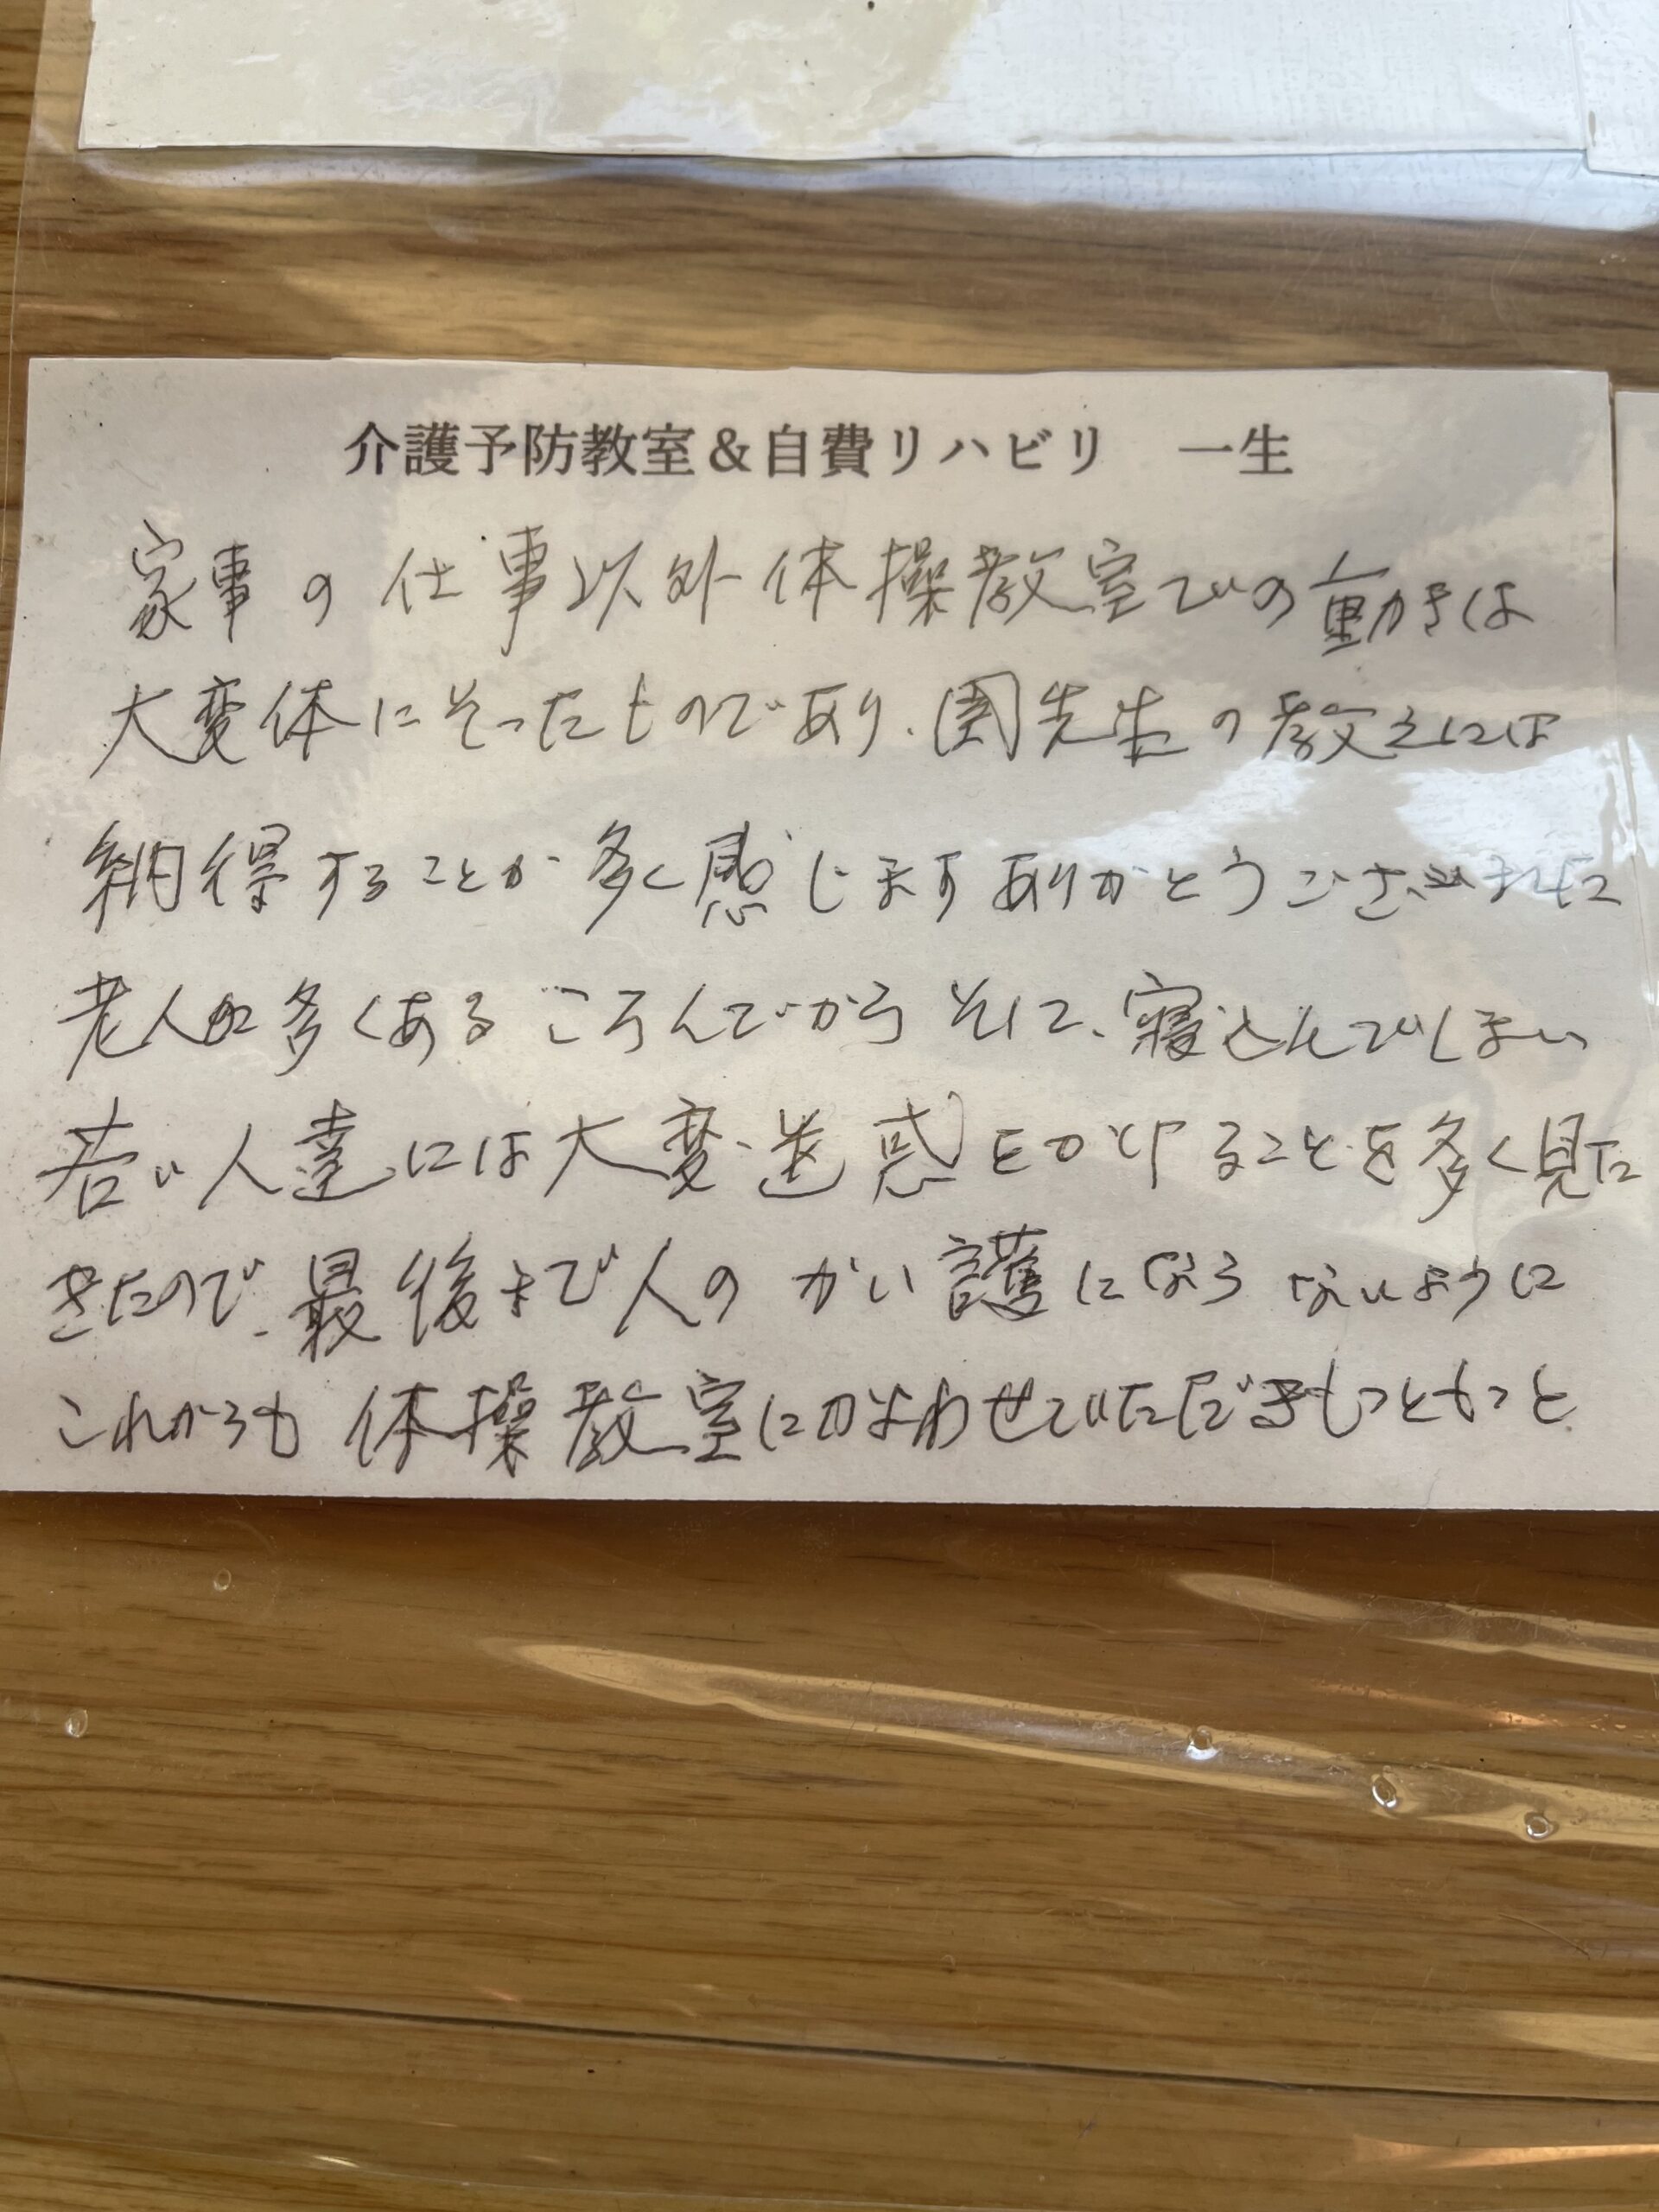 介護予防教室&自費リハビリ 一生
家事の仕事以外体操教室での動きは
大変体にそったものであり、園先生の教えには
納得することが多く感じますありがとうございました
老人に多くあるころんでから そして、寝こんでしまい
若い人達には大変迷惑をかけることを多く見た
きたので、最後まで人のかい護にならないように
これからも体操教室にかよわせていただきもっともっと